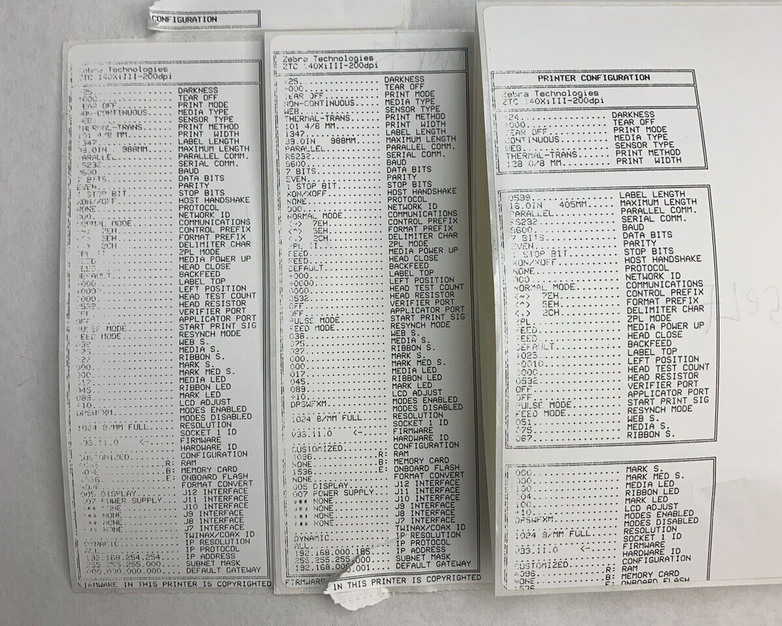 CONFIGURATION
Zebra Technologies
ZTC 140XiIII-200dpi
DARKNESS
TEAR OFF
TEAR OFF PRINT MODE
NON-CONTINUOUS MEDIA TYPE
WEB SENSOR TYPE
THERMAL-TRANS. PRINT METHOD
101 4/8 MM. PRINT WIDTH
LABEL LENGTH
39.0IN 988MM. MAXIMUM LENGTH
PARALLEL PARALLEL COMM.
RS232 SERIAL COMM.
9600 BAUD
7 BITS DATA BITS
EVEN PARITY
1 STOP BIT STOP BITS
XON/XOFF HOST HANDSHAKE
NONE PROTOCOL
000 NETWORK ID
NORMAL MODE COMMUNICATIONS
7EH CONTROL PREFIX
5EH FORMAT PREFIX
2CH DELIMITER CHAR
ZPL MODE
MEDIA POWER UP
HEAD CLOSE
BACKFEED
LABEL TOP
LEFT POSITION
HEAD TEST COUNT
HEAD RESISTOR
VERIFIER PORT
APPLICATOR PORT
PULSE MODE START PRINT SIG
FEED MODE RESYNCH MODE
WEB S.
MEDIA S.
RIBBON S.
MARK S.
MARK MED S.
MEDIA LED
RIBBON LED
MARK LED
LCD ADJUST
MODES ENABLED
MODES DISABLED
1024 8/MM FULL RESOLUTION
SOCKET 1 ID
V33.11.0 <- FIRMWARE
HARDWARE ID
CUSTOMIZED CONFIGURATION
R: RAM
B: MEMORY CARD
E: ONBOARD FLASH
FORMAT CONVERT
005 DISPLAY J12 INTERFACE
007 POWER SUPPLY J11 INTERFACE
NONE J10 INTERFACE
NONE J9 INTERFACE
NONE J8 INTERFACE
NONE J7 INTERFACE
TWINAX/COAX ID
DYNAMIC IP RESOLUTION
IP PROTOCOL
192.168.254.254 IP ADDRESS
255.255.255.000 SUBNET MASK
000.000.000.000 DEFAULT GATEWAY
FIRMWARE IN THIS PRINTER IS COPYRIGHTED
Zebra Technologies
ZTC 140XiIII-200dpi
DARKNESS
TEAR OFF
TEAR OFF PRINT MODE
NON-CONTINUOUS MEDIA TYPE
WEB SENSOR TYPE
THERMAL-TRANS. PRINT METHOD
101 4/8 MM. PRINT WIDTH
1347 LABEL LENGTH
39.0IN 988MM. MAXIMUM LENGTH
PARALLEL PARALLEL COMM.
RS232 SERIAL COMM.
9600 BAUD
7 BITS DATA BITS
EVEN PARITY
1 STOP BIT STOP BITS
XON/XOFF HOST HANDSHAKE
NONE PROTOCOL
000 NETWORK ID
NORMAL MODE COMMUNICATIONS
<~> 7EH CONTROL PREFIX
<^> 5EH FORMAT PREFIX
<,> 2CH DELIMITER CHAR
ZPL MODE
FEED MEDIA POWER UP
FEED HEAD CLOSE
DEFAULT BACKFEED
+000 LABEL TOP
+0000 LEFT POSITION
0000 HEAD TEST COUNT
0592 HEAD RESISTOR
OFF VERIFIER PORT
OFF APPLICATOR PORT
PULSE MODE START PRINT SIG
FEED MODE RESYNCH MODE
038 WEB S.
075 MEDIA S.
027 RIBBON S.
000 MARK S.
000 MARK MED S.
017 MEDIA LED
045 RIBBON LED
089 MARK LED
+10 LCD ADJUST
DPSWFXM MODES ENABLED
MODES DISABLED
1024 8/MM FULL RESOLUTION
SOCKET 1 ID
V33.11.0 <- FIRMWARE
HARDWARE ID
CUSTOMIZED CONFIGURATION
4096 R: RAM
NONE B: MEMORY CARD
1536 E: ONBOARD FLASH
NONE FORMAT CONVERT
005 DISPLAY J12 INTERFACE
007 POWER SUPPLY J11 INTERFACE
*** NONE J10 INTERFACE
*** NONE J9 INTERFACE
*** NONE J8 INTERFACE
*** NONE J7 INTERFACE
TWINAX/COAX ID
DYNAMIC IP RESOLUTION
ALL IP PROTOCOL
192.168.000.185 IP ADDRESS
255.255.255.000 SUBNET MASK
192.168.000.001 DEFAULT GATEWAY
FIRMWARE IN THIS PRINTER IS COPYRIGHTED
PRINTER CONFIGURATION
Zebra Technologies
ZTC 140XiIII-200dpi
DARKNESS
TEAR OFF
TEAR OFF PRINT MODE
CONTINUOUS MEDIA TYPE
WEB SENSOR TYPE
THERMAL-TRANS. PRINT METHOD
128 0/8 MM. PRINT WIDTH
LABEL LENGTH
16.0IN 405MM. MAXIMUM LENGTH
PARALLEL PARALLEL COMM.
RS232 SERIAL COMM.
9600 BAUD
7 BITS DATA BITS
EVEN PARITY
1 STOP BIT STOP BITS
XON/XOFF HOST HANDSHAKE
NONE PROTOCOL
000 NETWORK ID
NORMAL MODE COMMUNICATIONS
<~> 7EH CONTROL PREFIX
<^> 5EH FORMAT PREFIX
<,> 2CH DELIMITER CHAR
ZPL MODE
FEED MEDIA POWER UP
FEED HEAD CLOSE
DEFAULT BACKFEED
LABEL TOP
LEFT POSITION
HEAD TEST COUNT
0592 HEAD RESISTOR
OFF VERIFIER PORT
OFF APPLICATOR PORT
PULSE MODE START PRINT SIG
FEED MODE RESYNCH MODE
051 WEB S.
075 MEDIA S.
067 RIBBON S.
MARK S.
MARK MED S.
MEDIA LED
RIBBON LED
MARK LED
LCD ADJUST
DPSWFXM MODES ENABLED
MODES DISABLED
1024 8/MM FULL RESOLUTION
SOCKET 1 ID
V33.11.0 <- FIRMWARE
HARDWARE ID
CUSTOMIZED CONFIGURATION
4096 R: RAM
NONE B: MEMORY CARD
1536 E: ONBOARD FLASH